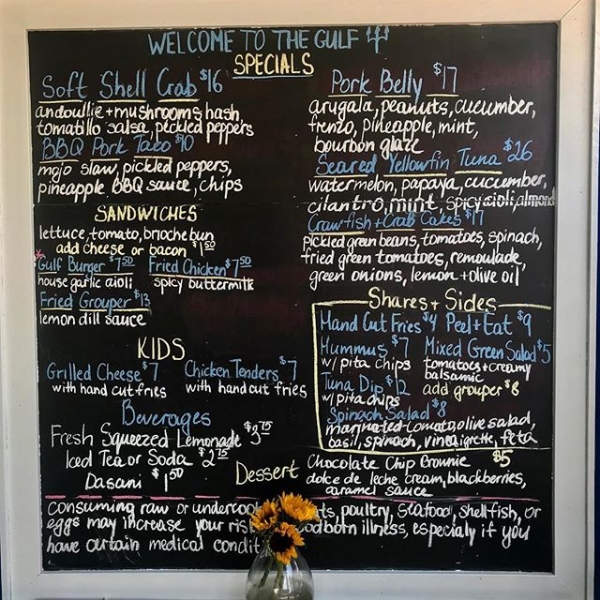 WELCOME TO THE GULF
SPECIALS
Soft Shell Crab $16
andouille + mushrooms hash
tomatillo salsa, pickled peppers
BBQ Pork Taco $10
mojo slaw, pickled peppers,
pineapple BBQ sauce, chips
SANDWICHES
lettuce, tomato, brioche bun
add cheese or bacon $1.50
*Gulf Burger $7.50
house garlic aioli
Fried Chicken $7.50
spicy buttermilk
Fried Grouper $13
lemon dill sauce
KIDS
Grilled Cheese $7
with hand cut fries
Chicken Tenders $7
with hand cut fries
Beverages
Fresh Squeezed Lemonade $3.75
Iced Tea or Soda $2.75
Dasani $1.50
Pork Belly $17
arugala, peanuts, cucumber,
frenzo, pineapple, mint,
bourbon glaze
Seared Yellowfin Tuna $26
watermelon, papaya, cucumber,
cilantro, mint, spicy aioli, almond
Crawfish + Crab Cakes $17
pickled green beans, tomatoes, spinach,
fried green tomatoes, remoulade,
green onions, lemon + olive oil
Shares + Sides
Hand Cut Fries $4 Peel + Eat $9
Hummus $7
w/ pita chips
Mixed Green Salad $5
tomatoes + creamy
balsamic
add grouper $8
Tuna Dip $12
w/ pita chips
Spinach Salad $8
marinated tomato, olive salad,
basil, spinach, vineigrette, feta
Dessert
Chocolate Chip Brownie $5
dolce de leche cream, blackberries,
caramel sauce
consuming raw or undercoo ts, poultry, seafood, shellfish, or
eggs may increase your ris odborn illness, especialy if you
have certain medical condit